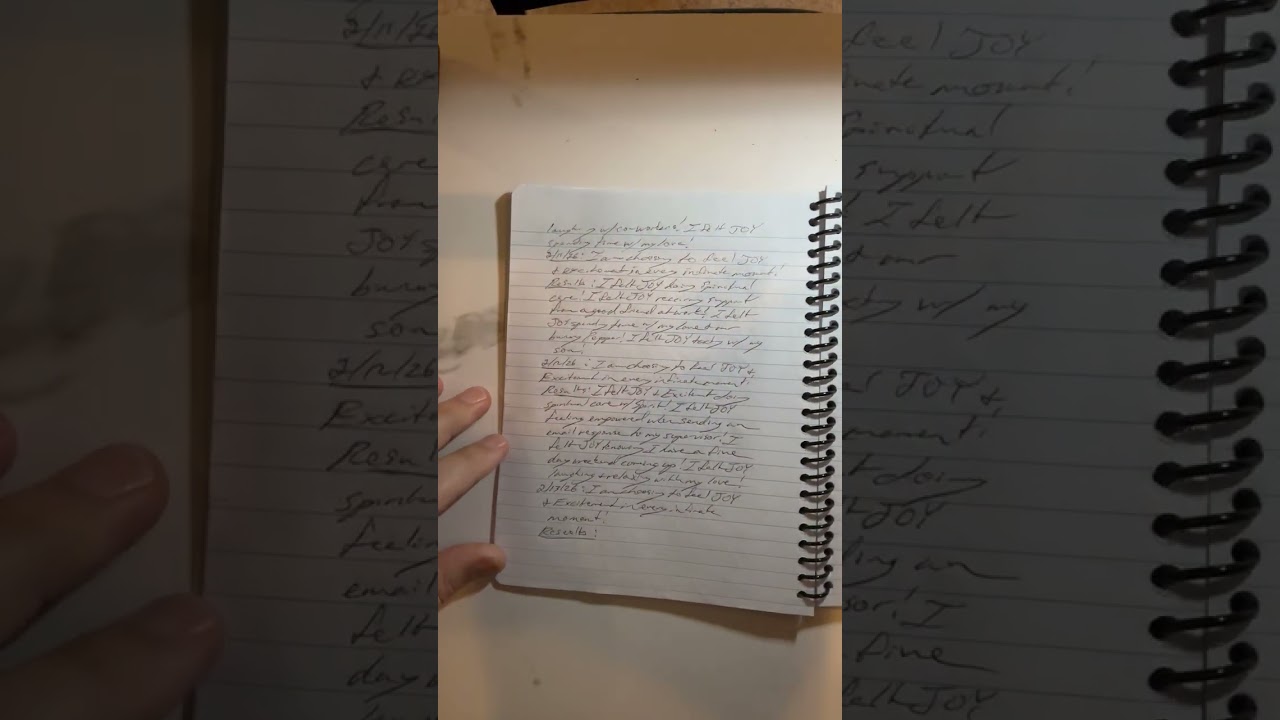 laughing w/ co-workers! I felt JOY
spending time w/ my love!
2/11/26: I am choosing to feel JOY
& excitement in every intimate moment!
Results: I felt JOY doing spiritual
care! I felt JOY receiving support
from a good friend at work! I felt
JOY spending time w/ my love & our
bunny Pepper! I felt JOY texting w/ my
son!
2/12/26: I am choosing to feel JOY &
Excitement in every intimate moment!
Results: I felt JOY & Excitement doing
spiritual care w/ Spirit! I felt JOY
feeling empowered when sending an
email response to my supervisor! I
felt JOY knowing I have a five
day weekend coming up! I felt JOY
laughing & relaxing with my love!
2/13/26: I am choosing to feel JOY
& Excitement in every intimate
moment!
Results: